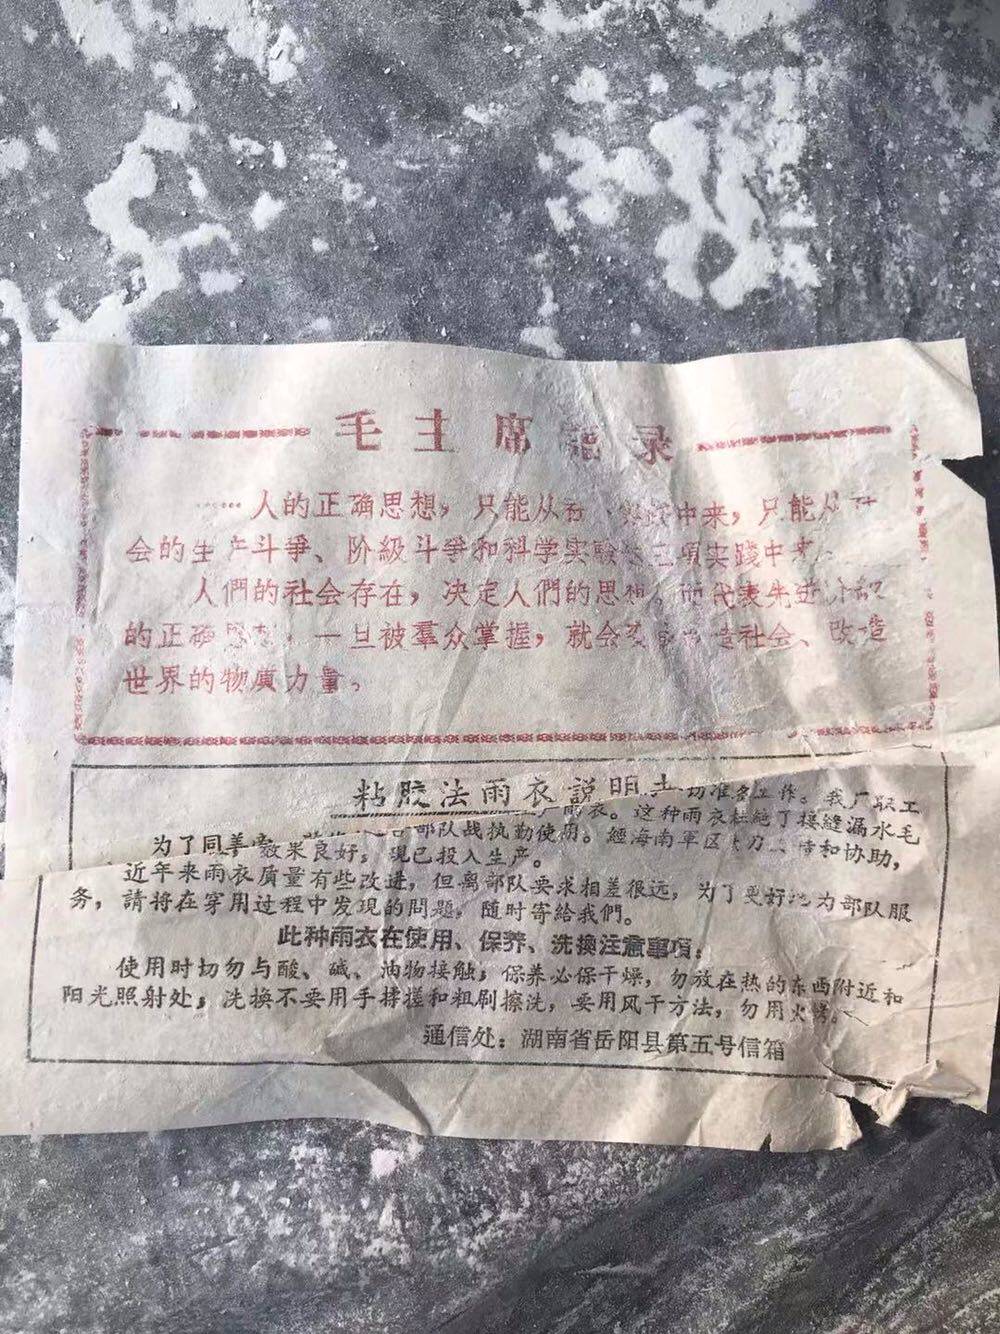 毛主席語录
……人的正确思想，只能从社 实践中来，只能从社
会的生产斗爭、阶級斗爭和科学实驗 三項实践中来。
人們的社会存在，决定人們的思想。而代表先进阶級
的正确思想，一旦被羣众掌握，就会变 造社会、改造
世界的物质力量。
粘胶法雨衣説明
切准备工作。我厂职工
为了同 雨衣。这种雨衣杜絕了接縫漏水毛
部队战执勤使用。經海南军区 和协助，
效果良好，現已投入生产。
近年来雨衣质量有些改进，但离部队要求相差很远，为了更好地为部队服
务，請将在穿用过程中发现的問題，随时寄給我們。
此种雨衣在使用、保养、洗換注意事項：
使用时切勿与酸、碱、油物接触；保养必保干燥，勿放在热的东西附近和
阳光照射处；洗換不要用手揉搓和粗刷擦洗，要用风干方法，勿用火烤。
通信处：湖南省岳阳县第五号信箱